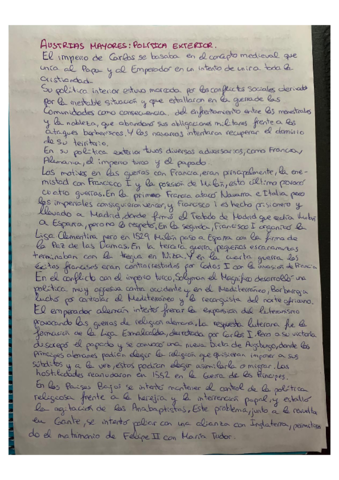 AUSTRIAS MAYORES: POLÍTICA EXTERIOR.
El imperio de Carlos se basaba en el concepto medieval que
unía al Papa y al Emperador en un intento de unir a toda la
cristiandad.
Su política interior estuvo marcada por los conflictos sociales derivado
por la inestable situación y que estallaron en la guerra de las
Comunidades como consecuencia del enfrentamiento entre los
y la nobleza, que abandonó sus obligaciones militares frente a los
ataques berberiscos. Y los intentaron recuperar el dominio
de su territorio.
En su política exterior tuvo diversos adversarios, como Francia,
Alemania, el imperio turco y el papado.
Los motivos en las guerras con Francia, eran principalmente, la ene-
mistad con Francisco I y la posesión de Milán, esto último provocó
cuatro guerras. En la primera Francia atacó Navarra e Italia, pero
los imperiales consiguieron vencer, y Francisco I es hecho prisionero y
llevado a Madrid donde firmó el Tratado de Madrid que cedía Milán
a España, pero no lo respetó. En la segunda, Francisco I organizó la
Liga Clementina, pero en 1529 Milán pasó a España con la firma de
la Paz de las Damas. En la tercera guerra, pequeños escaramuzas
terminaban con la tregua en Niza. Y en la cuarta guerra, los
éxitos franceses eran contrarrestados por Carlos I con la invasión de Francia
En el conflicto con el imperio turco, Solimán el Magnífico desarrolló una
política muy ofensiva contra occidente y en el Mediterráneo, Barbarroja
luchó por controlar el Mediterráneo y la reconquista del norte africano.
El emperador alemán intentó frenar la expansión del luteranismo
provocando las guerras de religión alemanas. La respuesta luterana fue la
formación de la Liga Esmalcalda, derrotada por Carlos I. Pero a su victoria
discrepó el papado y se convocó una nueva Dieta de Augsburgo, donde los
príncipes alemanes podían elegir la religión que quisieran imponer a sus
súbditos y a la vez, estos podían elegir asimilarla o migrar. Las
hostilidades reanudaron en 1552 en la Guerra de los Príncipes.
En los Países Bajos se intentó mantener el control de la política
religiosa frente a la herejía y la interferencia papal, y estalló
la agitación de los Anabaptistas. Este problema, junto a la revuelta
de Gante, se intentó paliar con una alianza con Inglaterra, pactan
do el matrimonio de Felipe II con María Tudor.